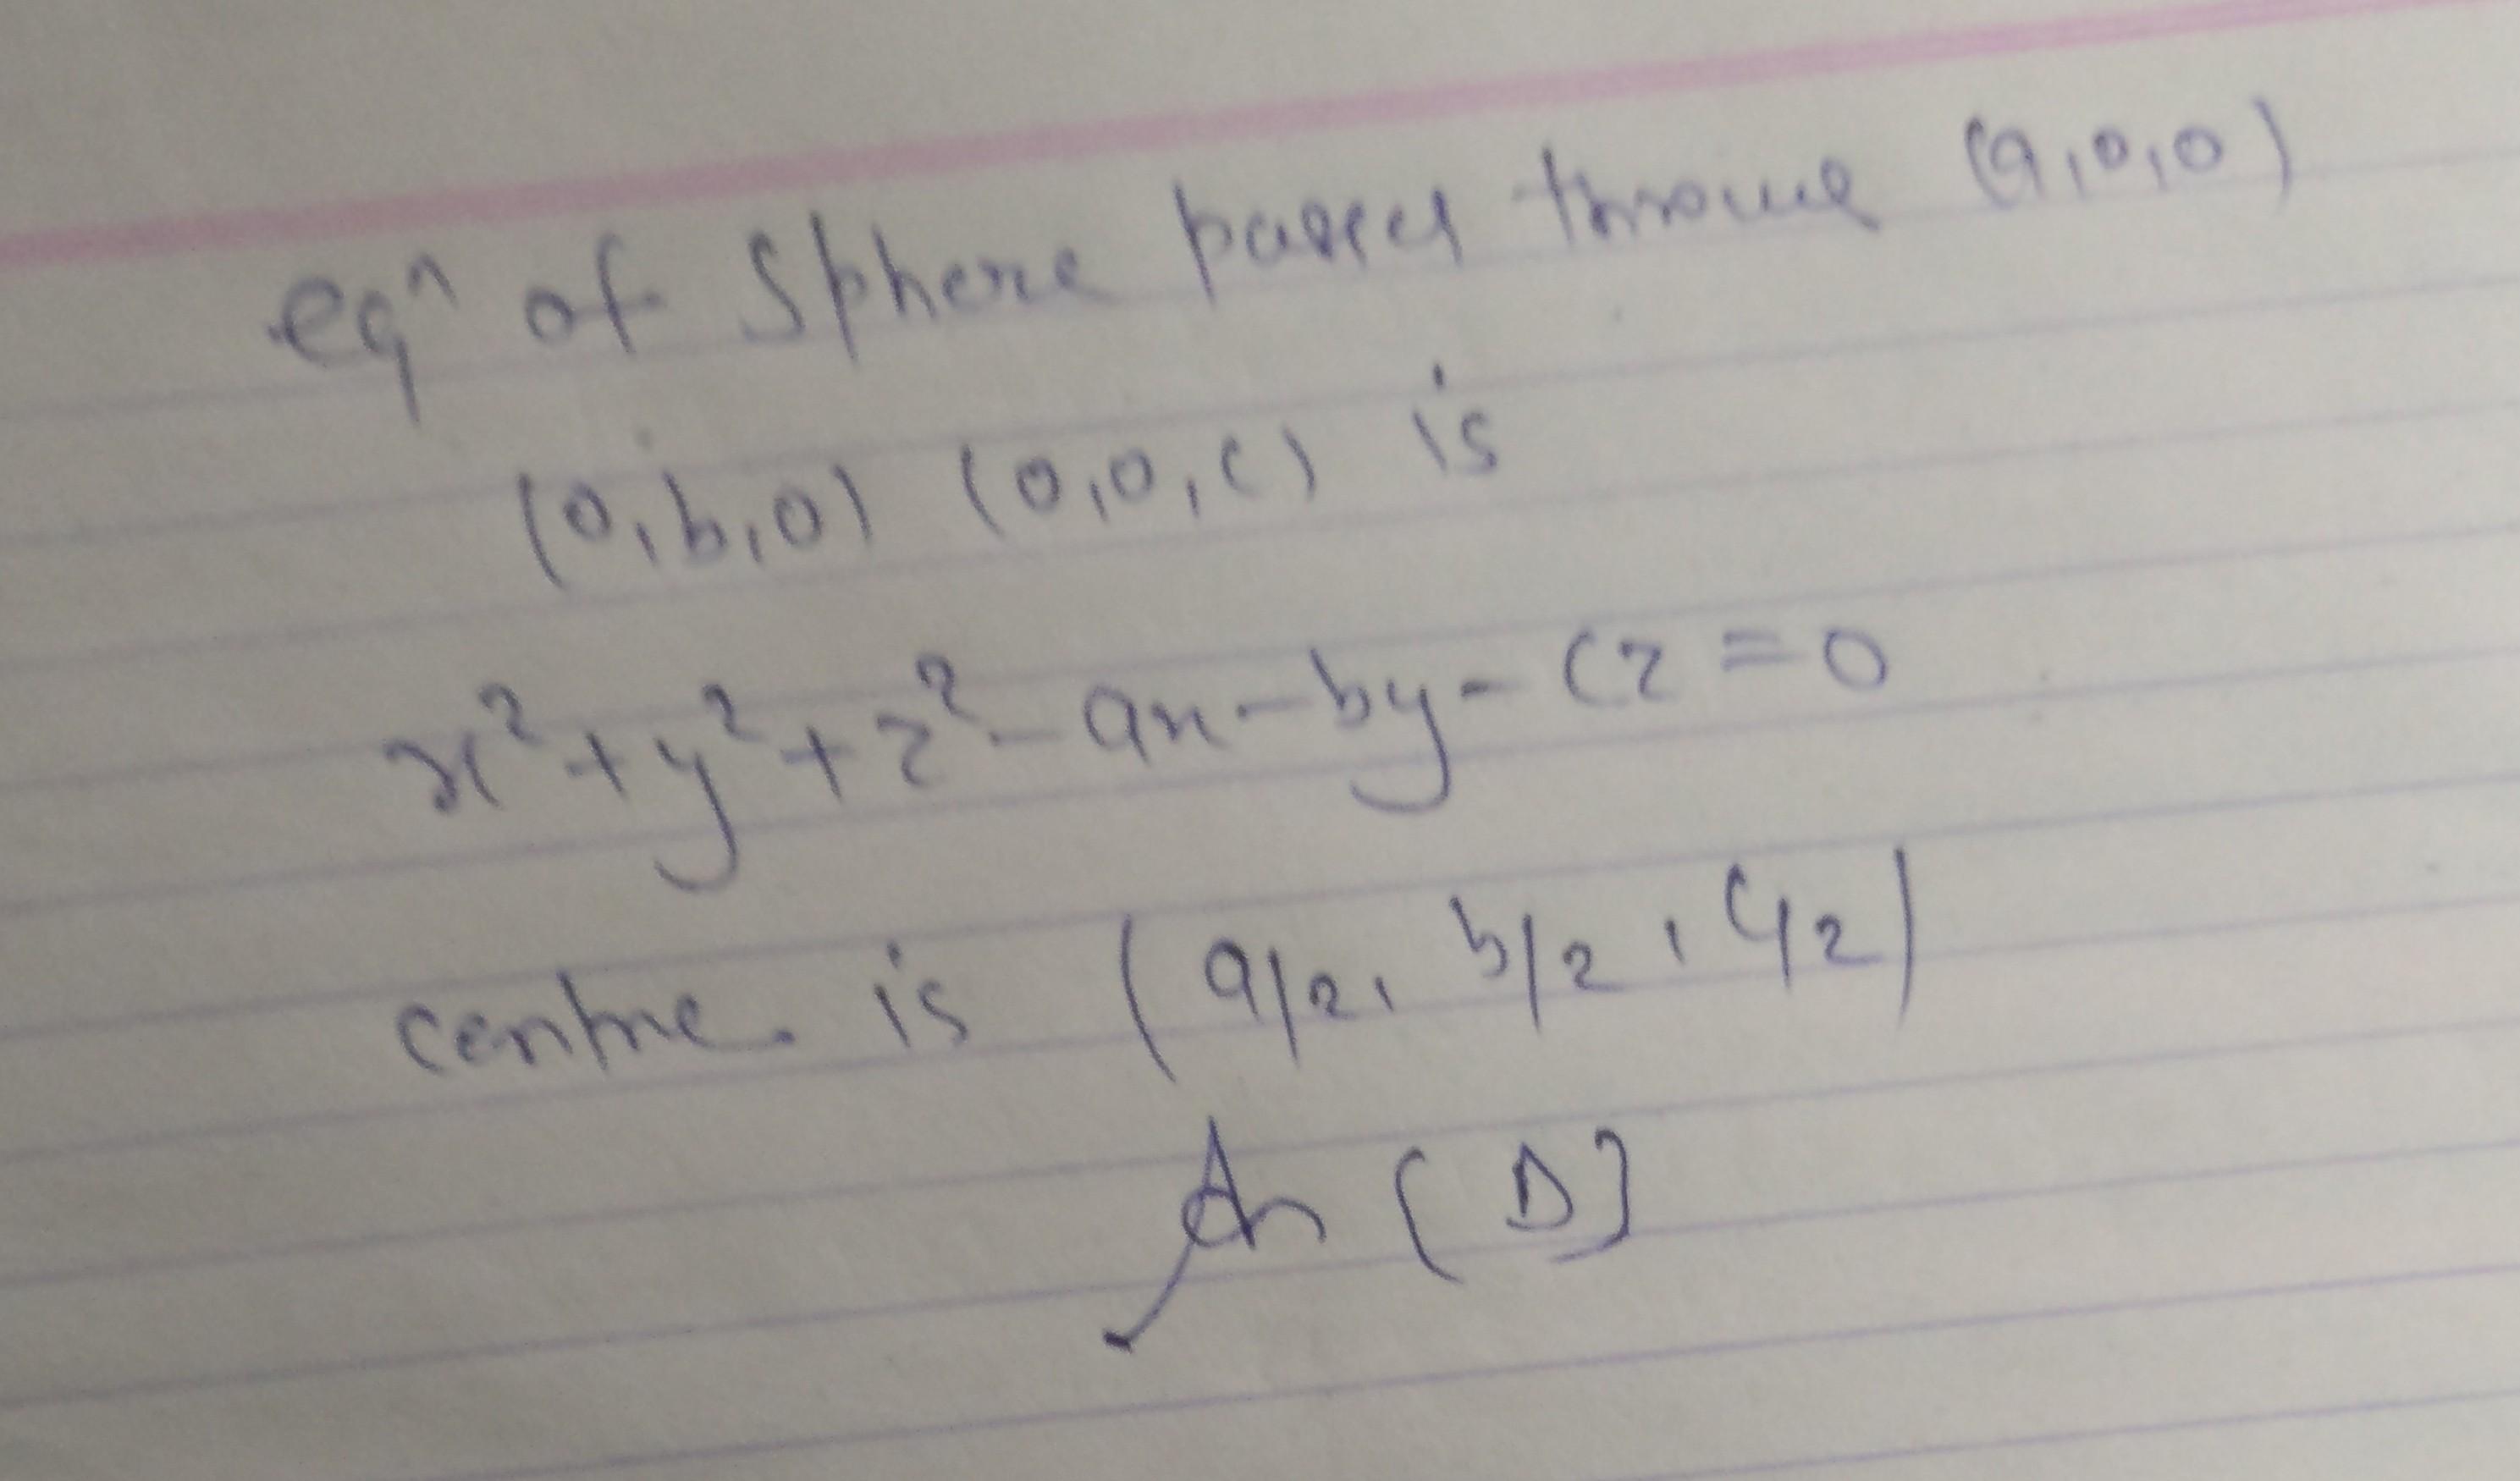 eqⁿ of Sphere passes throue (a,0,0)
(0,b,0) (0,0,c) is
x²+y²+z²-ax-by-cz=0
centre is (a/2, b/2, c/2)
An [D]